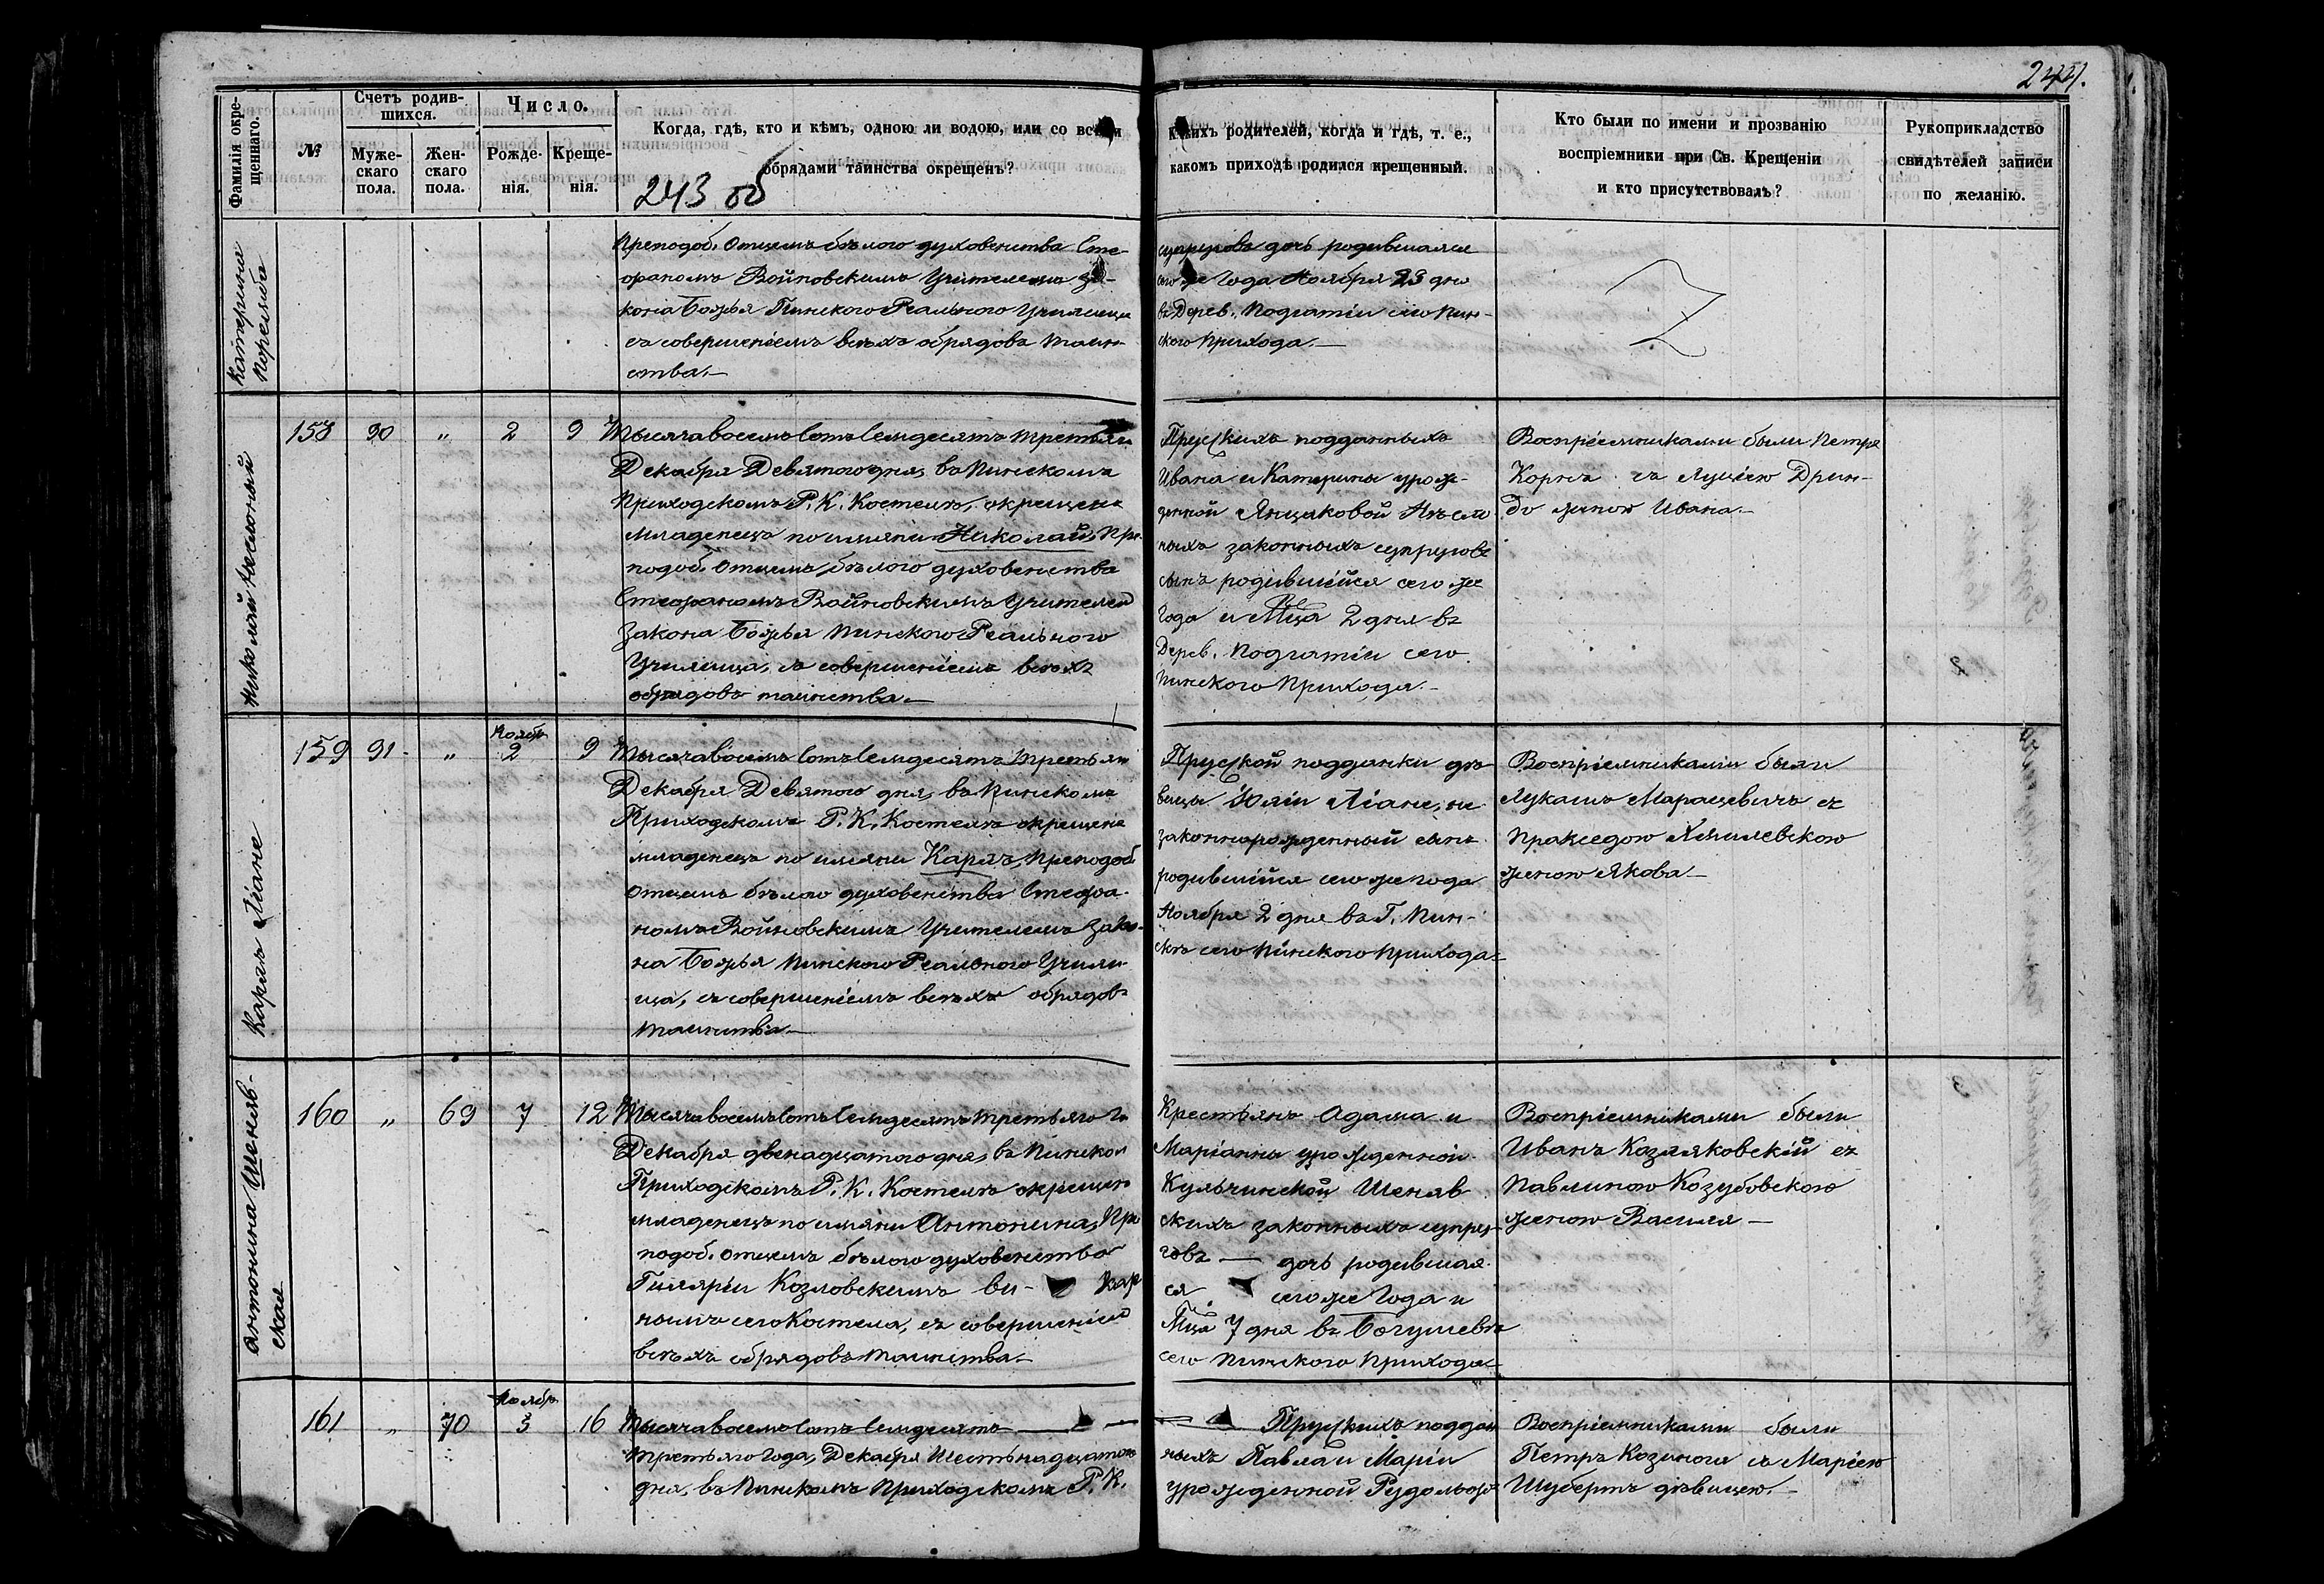 244.
Фамилія окре-
щеннаго.
№
Счетъ родив-
шихся.
Муже-
скаго
пола.
Жен-
скаго
пола.
Число.
Рожде-
нія.
Креще-
нія.
Когда, гдѣ, кто и кѣмъ, одною ли водою, или со
обрядами таинства окрещенъ?
243 об
родителей, когда и гдѣ, т. е.,
какомъ приходѣ родился крещенный.
Кто были по имени и прозванію
воспріемники при Св. Крещеніи
и кто присутствовалъ?
Рукоприкладство
свидѣтелей записи
по желанію.
Катерина
Преподоб. Отцемъ бѣлаго духовенства Сте-
фаномъ Войновскимъ Учителемъ За-
кона Божья Пинскаго Реальнаго Училища
съ совершеніемъ всѣхъ обрядовъ таин-
ства.—
супруговъ дочь родившаяся
сего же Года Ноября 23 дня
въ Дерев. Подгатіи сего Пин-
скаго Прихода.—
Николай
158 90 „ 2 9
Тысяча восемь сотъ семдесятъ третьяго
Декабря Девятого дня, въ Пинскомъ
Приходскомъ Р. К. Костелѣ, окрещенъ
младенецъ по имяни Николай, Пре-
подоб. Отцемъ бѣлого духовенства
Стефаномъ Войновскимъ Учителем
Закона Божья Пинского Реального
Училища, съ совершеніемъ всѣхъ
обрядовъ таинства.—
Прускихъ подданныхъ
Ивана и Катерины урож-
денной
ныхъ законныхъ супруговъ
сынъ родившійся сего же
Года и Мца 2 дня въ
Дерев. Подгатіи сего
Пинского Прихода.—
Воспріемниками были Петръ
Корнъ съ Луціею Дрин-
до женою Ивана.—
Карлъ Ліане
159 91 „
Ноябр.
2 9
Тысяча восемь сотъ семдесятъ третьяго
Декабря Девятого дня, въ Пинскомъ
Приходскомъ Р. К. Костелѣ окрещенъ
младенецъ по имяни Карлъ, Преподоб.
Отцемъ бѣлого духовенства Стефа-
номъ Войновскимъ Учителемъ Зако-
на Божья Пинского Реального Учили-
ща, съ совершеніемъ всѣхъ обрядовъ
таинства.—
Пруской подданки дѣ-
вицы Юліи Ліане, не
законнорожденный сынъ
родившійся сего же года
Ноября 2 дня въ Г. Пин-
скѣ сего Пинского Прихода—
Воспріемниками были
Лукашъ Марацевичъ съ
Праксѣдою
женою Якова.—
Антонина Шеняв-
ская
160 „ 69 7 12
Тысяча восемь сотъ семдесятъ третьяго Г.
Декабря двенадцатого дня, въ Пинском
Приходскомъ Р. К. Костелѣ окрещена
младенецъ по имяни Антонина, Пре-
подоб. Отцемъ бѣлого духовенства
Гиляріи Козловскимъ ви- кар-
нымъ сего Костела, съ совершеніем
всѣхъ обрядовъ таинства.—
Крестьянъ Адама и
Маріанны урожденной
Кульчинской Шеняв
скихъ законныхъ супру-
говъ — дочь родившая
ся. сего же Года и
Мца 7 дня въ Богушевѣ
сего Пинского Прихода—
Воспріемниками были
Иванъ Козляковскій съ
Павлиною Козубовскою
женою Василя—
161 „ 70
Ноябр.
3 16
Тысяча восемь сотъ семдесятъ —
третьяго Года, Декабря Шестьнадцатого
дня, въ Пинскомъ Приходскомъ Р. К.
Прускихъ поддан
ныхъ Павла и Маріи
урожденной Рудольф
Воспріемниками были
Петръ съ Маріею
Шубертъ дѣвицею.—